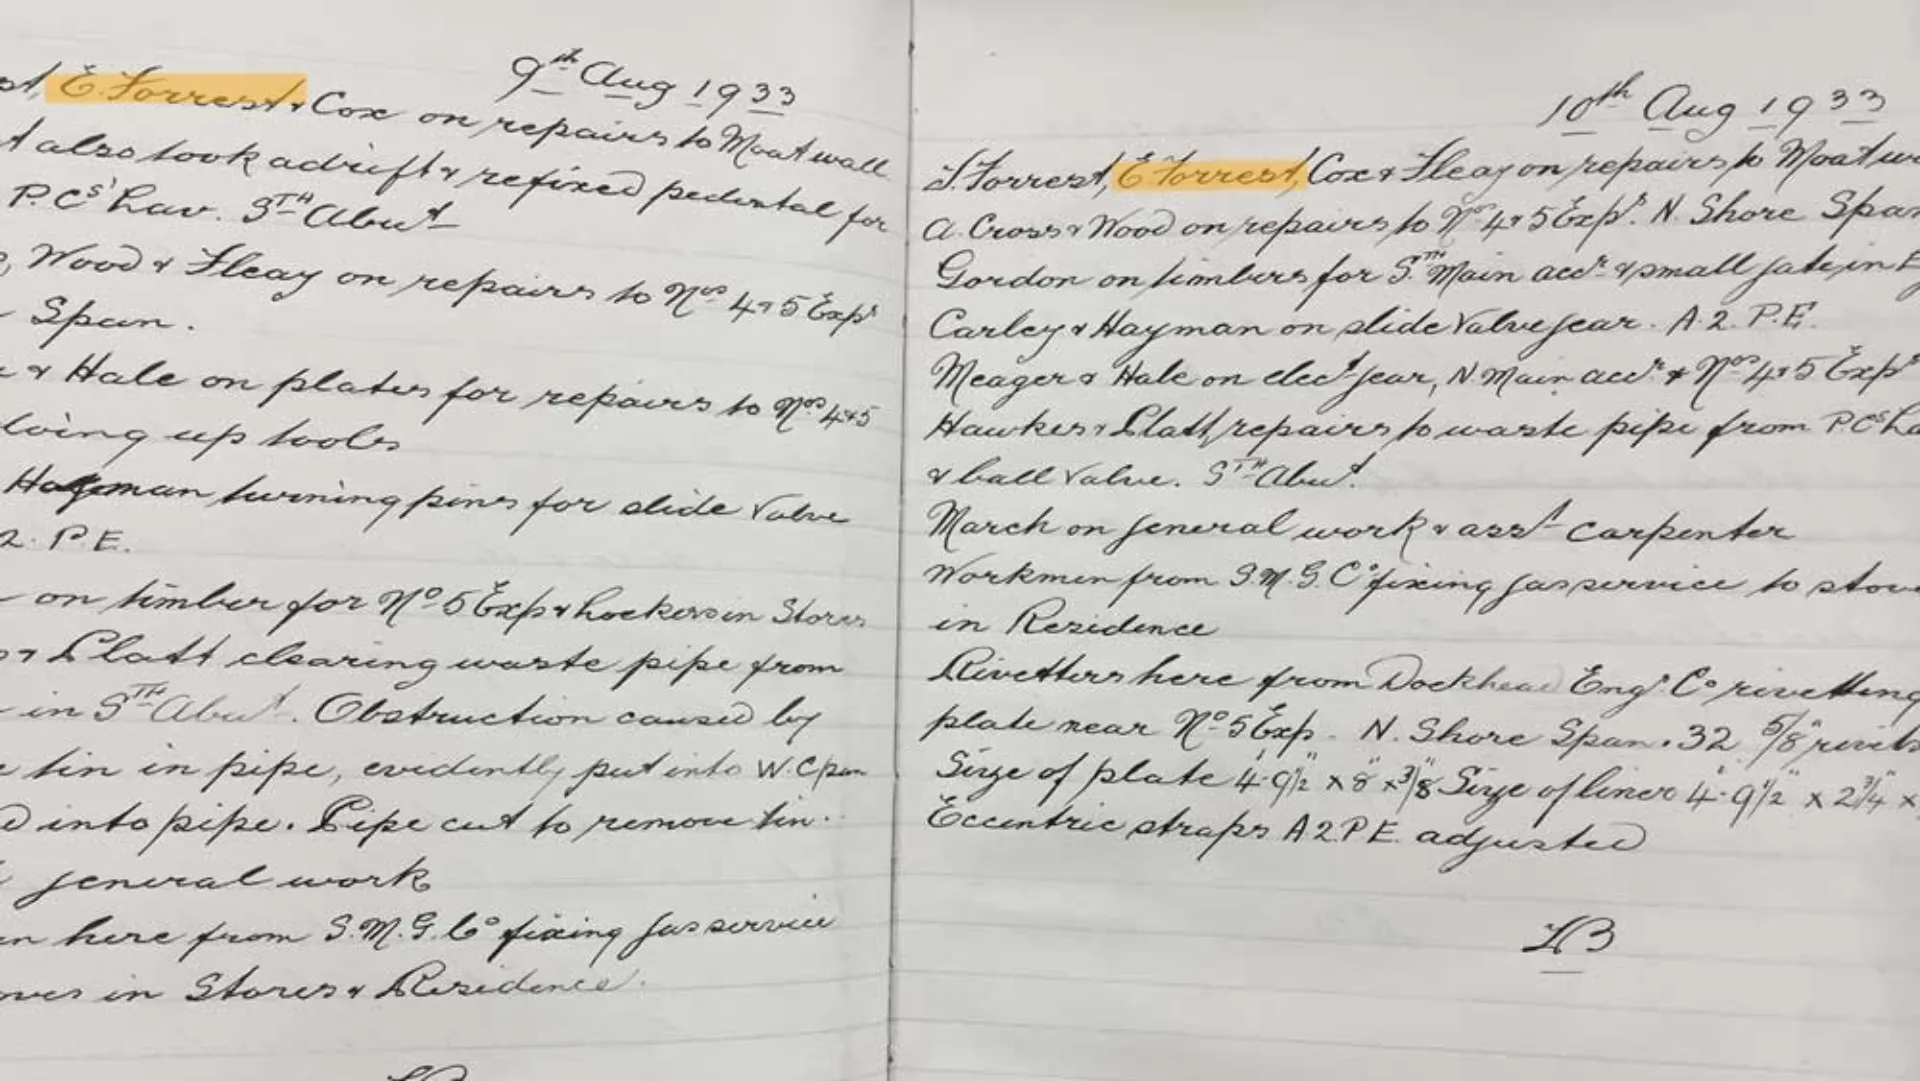 9th Aug 1933
E. Forrest & Cox on repairs to Moat wall
also took adrift & refixed pedestal for
P.Cs' Lav. STH Abut
Wood & Fleay on repairs to Nos 4 & 5 Expr
Span.
& Hale on plates for repairs to Nos 4 & 5
up tools
Hayman turning pins for slide valve
2. P.E.
on timber for No 5 Exp & lockers in Stores
& Platt clearing waste pipe from
in STH Abut. Obstruction caused by
tin in pipe, evidently put into W.C pan
into pipe. Pipe cut to remove tin.
general work
here from S.M.G. Co fixing gas service
in Stores & Residence.
10th Aug 1933
J. Forrest, E Forrest, Cox & Fleay on repairs to Moat
A. Cross & Wood on repairs to Nos 4 & 5 Expr. N. Shore Span
Gordon on timbers for STH Main accr & small gate in
Carley & Hayman on slide valve gear. A.2. P.E.
Meager & Hale on elect gear, N Main accr & Nos 4 & 5 Expr
Hawkes & Platt, repairs to waste pipe from P.Cs
& ball valve. STH Abut.
March on general work & asst carpenter
Workmen from S.M.G. Co fixing gas service to
in Residence
Rivetters here from Dockhead Engr. Co rivetting
plate near No 5 Exp. N. Shore Span. 32 5/8" rivets
Size of plate 4'-9 1/2" x 8" x 3/8 Size of liner 4'-9 1/2" x 2 3/4" x
Eccentric straps A2.P.E. adjusted